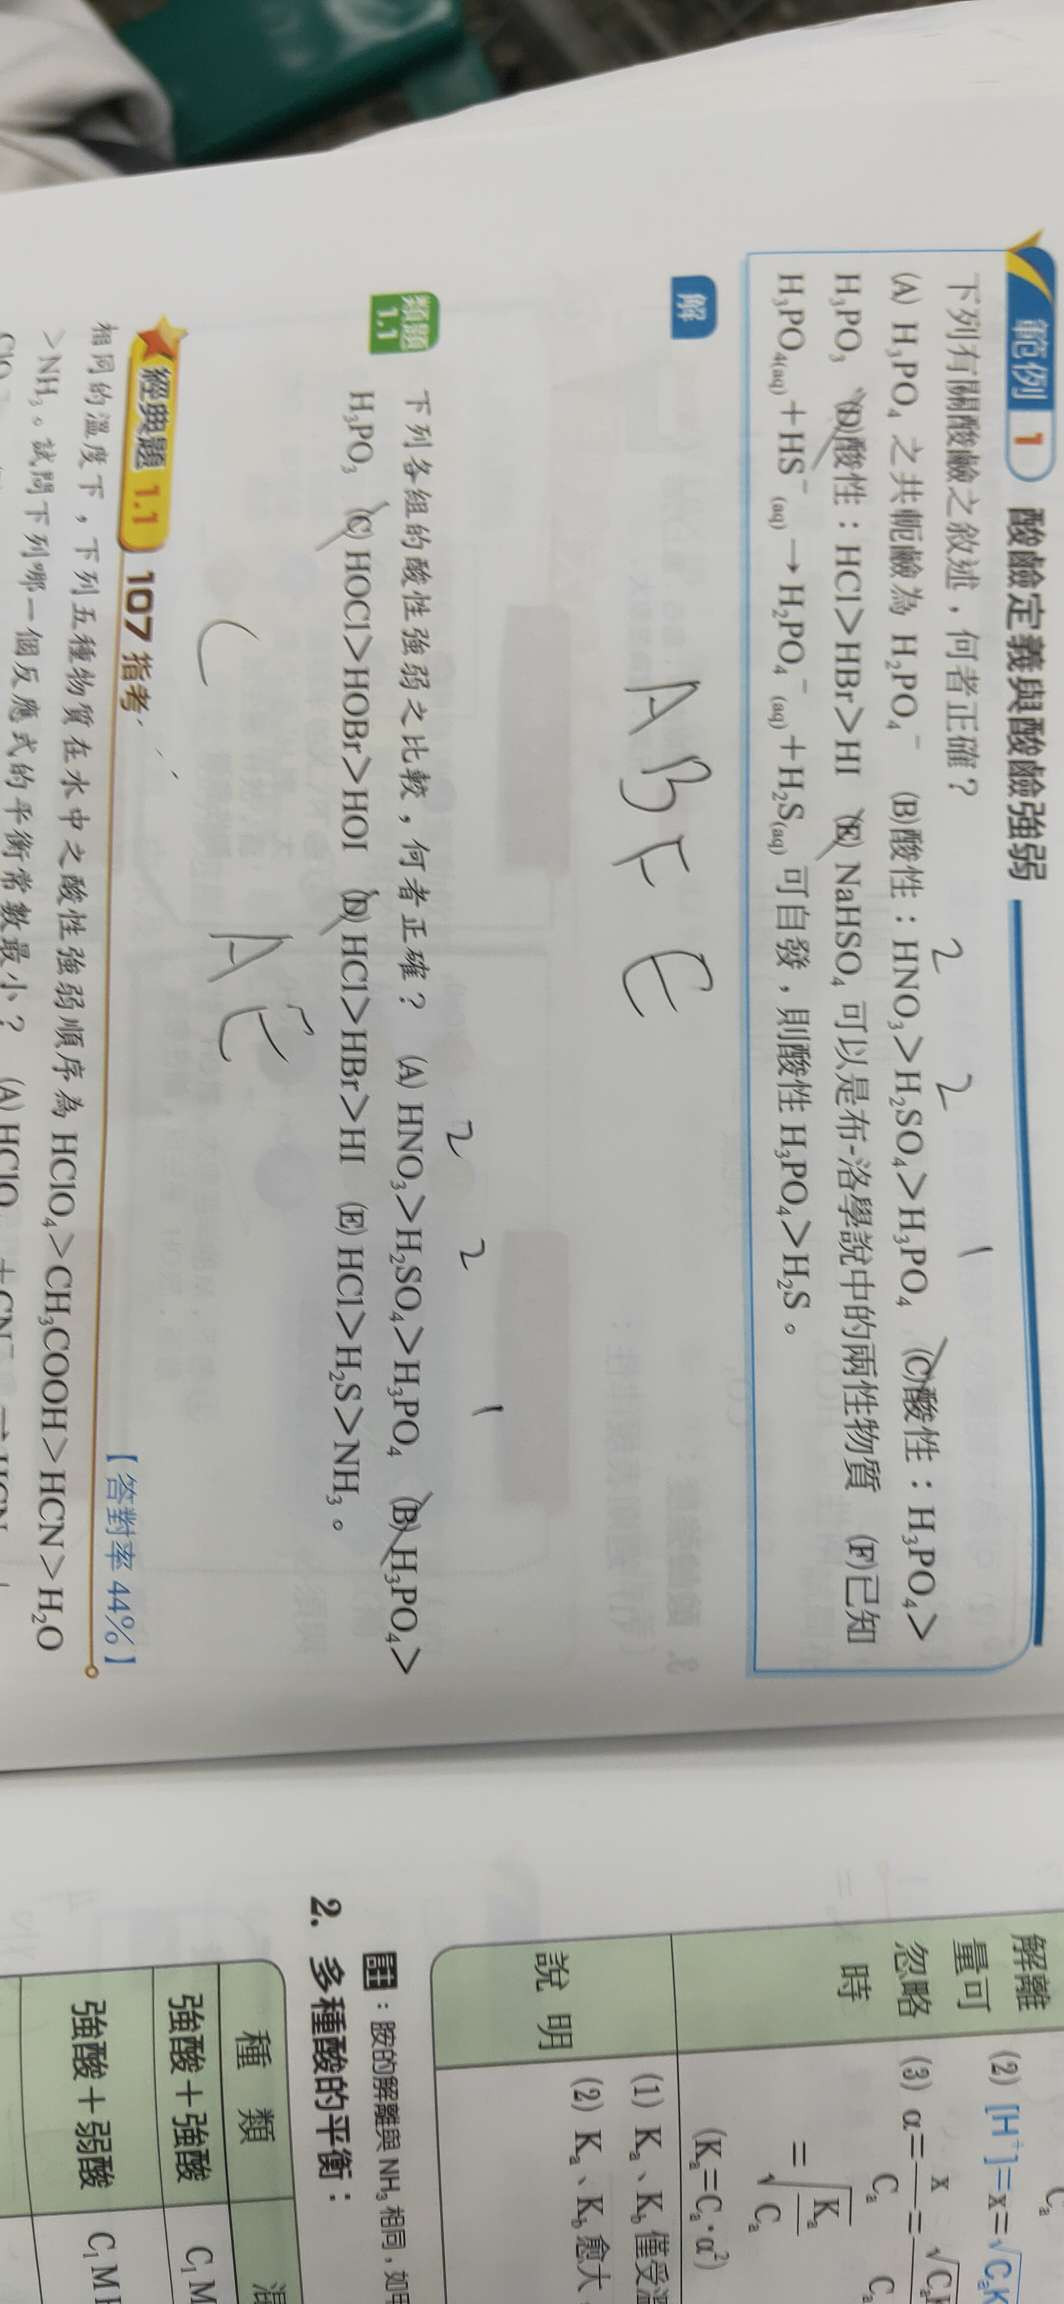 範例 1 酸鹼定義與酸鹼強弱
下列有關酸鹼之敘述，何者正確？
(A) H₃PO₄ 之共軛鹼為 H₂PO₄⁻ (B)酸性：HNO₃＞H₂SO₄＞H₃PO₄ (C)酸性：H₃PO₄＞
H₃PO₃ (D)酸性：HCl＞HBr＞HI (E) NaHSO₄ 可以是布-洛學說中的兩性物質 (F)已知
H₃PO₄(aq)＋HS⁻(aq)→H₂PO₄⁻(aq)＋H₂S(aq) 可自發，則酸性 H₃PO₄＞H₂S。
2 2 1
解
A B F E
類題 1.1
下列各組的酸性強弱之比較，何者正確？ (A) HNO₃＞H₂SO₄＞H₃PO₄ (B) H₃PO₄＞
H₃PO₃ (C) HOCl＞HOBr＞HOI (D) HCl＞HBr＞HI (E) HCl＞H₂S＞NH₃。
2 2 1
A E
經典題 1.1 107 指考
【答對率 44%】
相同的溫度下，下列五種物質在水中之酸性強弱順序為 HClO₄＞CH₃COOH＞HCN＞H₂O
＞NH₃。試問下列哪一個反應式的平衡常數最小？ (A) HClO
解離
量可
忽略
時
(2) [H⁺]=x=
(3) α=
x
Cₐ
=
Kₐ
Cₐ
(Kₐ=Cₐ·α²)
說明
(1) Kₐ、K_b 僅受
(2) Kₐ、K_b 愈大
註：胺的解離與 NH₃ 相同，如
2. 多種酸的平衡：
種類
強酸＋強酸 C₁ M
強酸＋弱酸 C₁ M